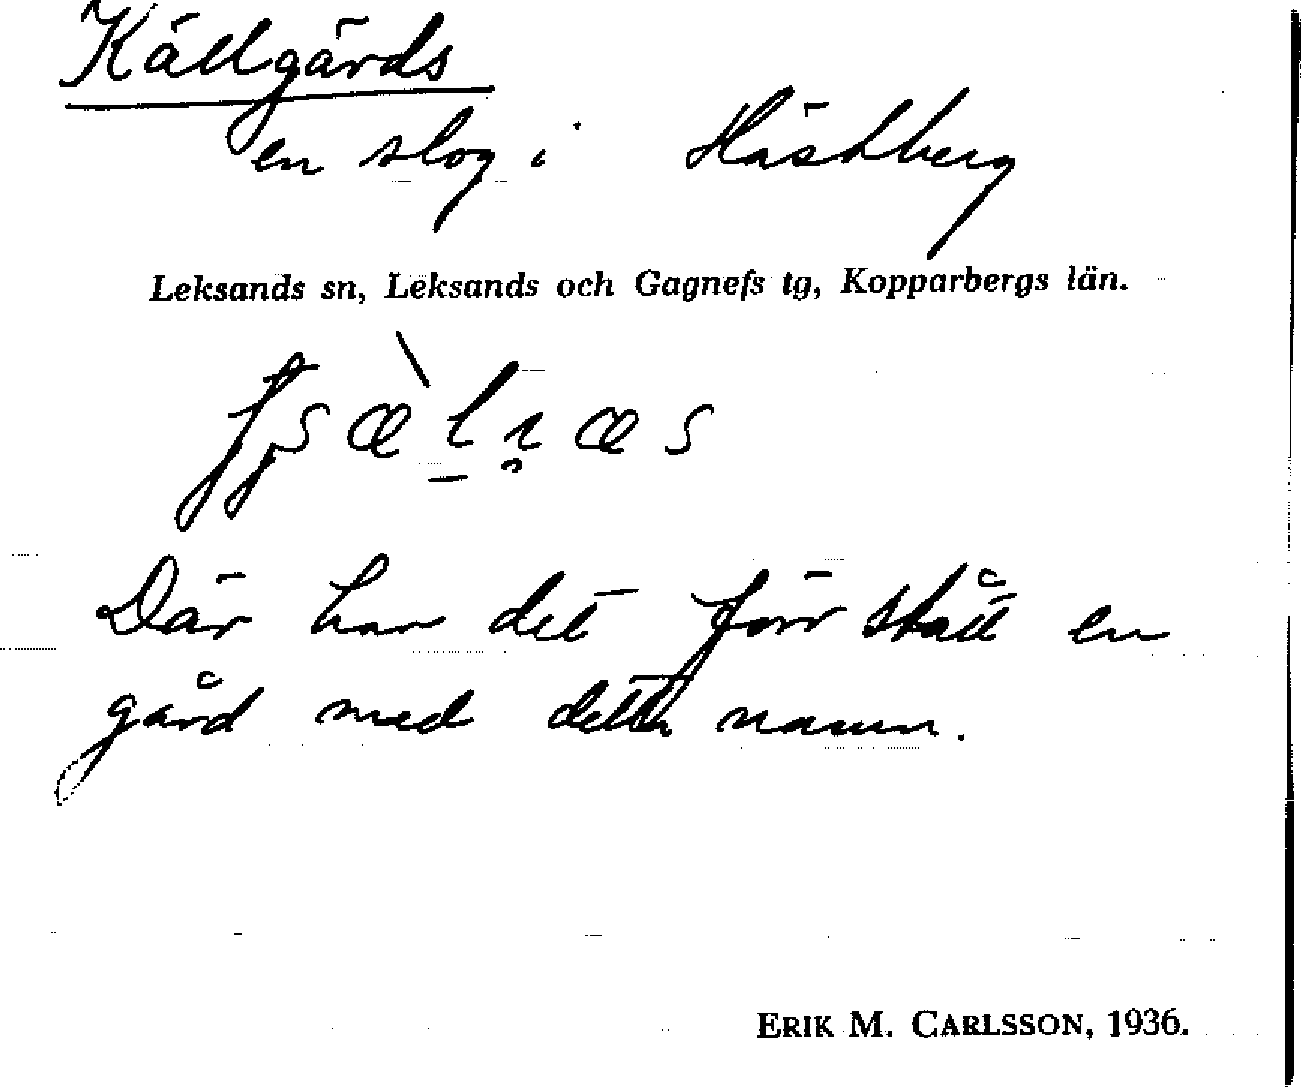 Källgärds
en slog i Hästberg
Leksands sn, Leksands och Gagnefs tg, Kopparbergs län.
Där har det förr stått en
gård med detta namn.
ERIK M. CARLSSON, 1936.